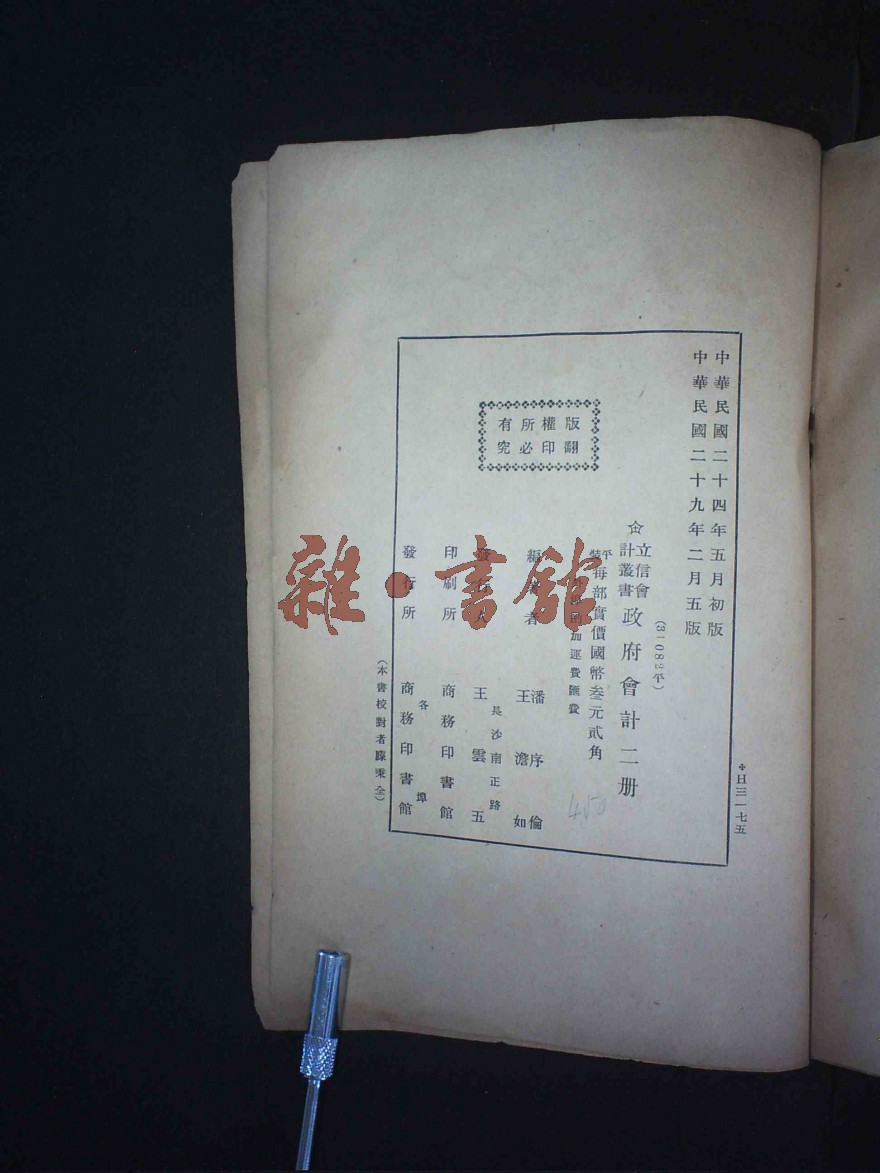 中華民國二十四年五月初版
中華民國二十九年二月五版
版權所有
翻印必究
立信會計叢書 政府會計二册
平裝每部實價國幣叁元貳角
加運費匯費
編著者 潘序倫 王澹如
發行人 王雲五
長沙南正路
印刷所 商務印書館
發行所 各埠 商務印書館
(本書校對者滕秉全)
H三一七五
450
雜·書館